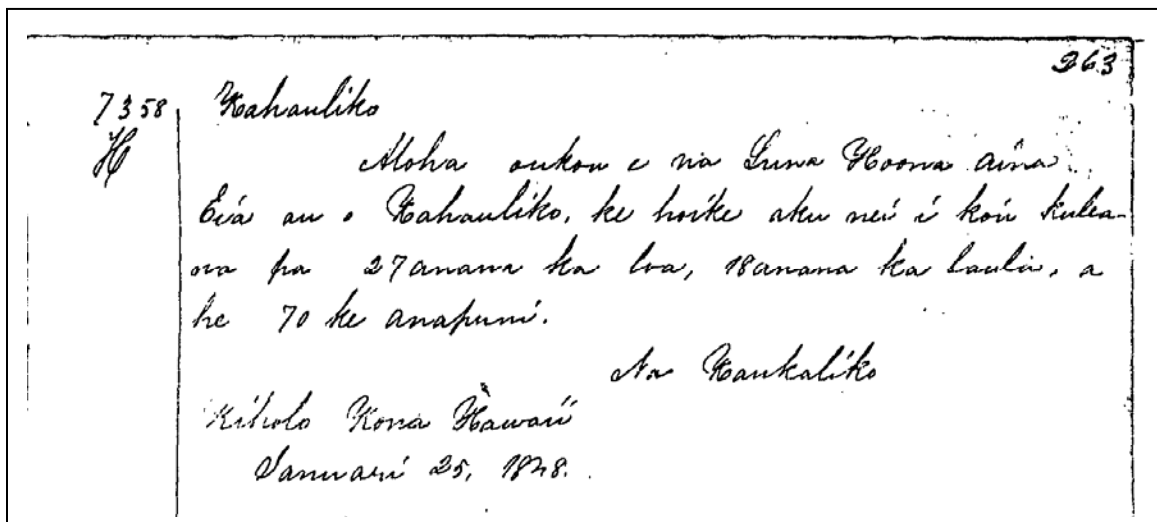 263
7358 Kahauliko
H Aloha oukou e na Luna Hoona aina
Eia au o Kahauliko, ke hoike aku nei i kou kulea-
na pa 27 anana ka loa, 18 anana ka laula, a
he 70 ke anapuni.
Na Kaukaliko
Kiholo Kona Hawaii
Ianuari 25, 1848.